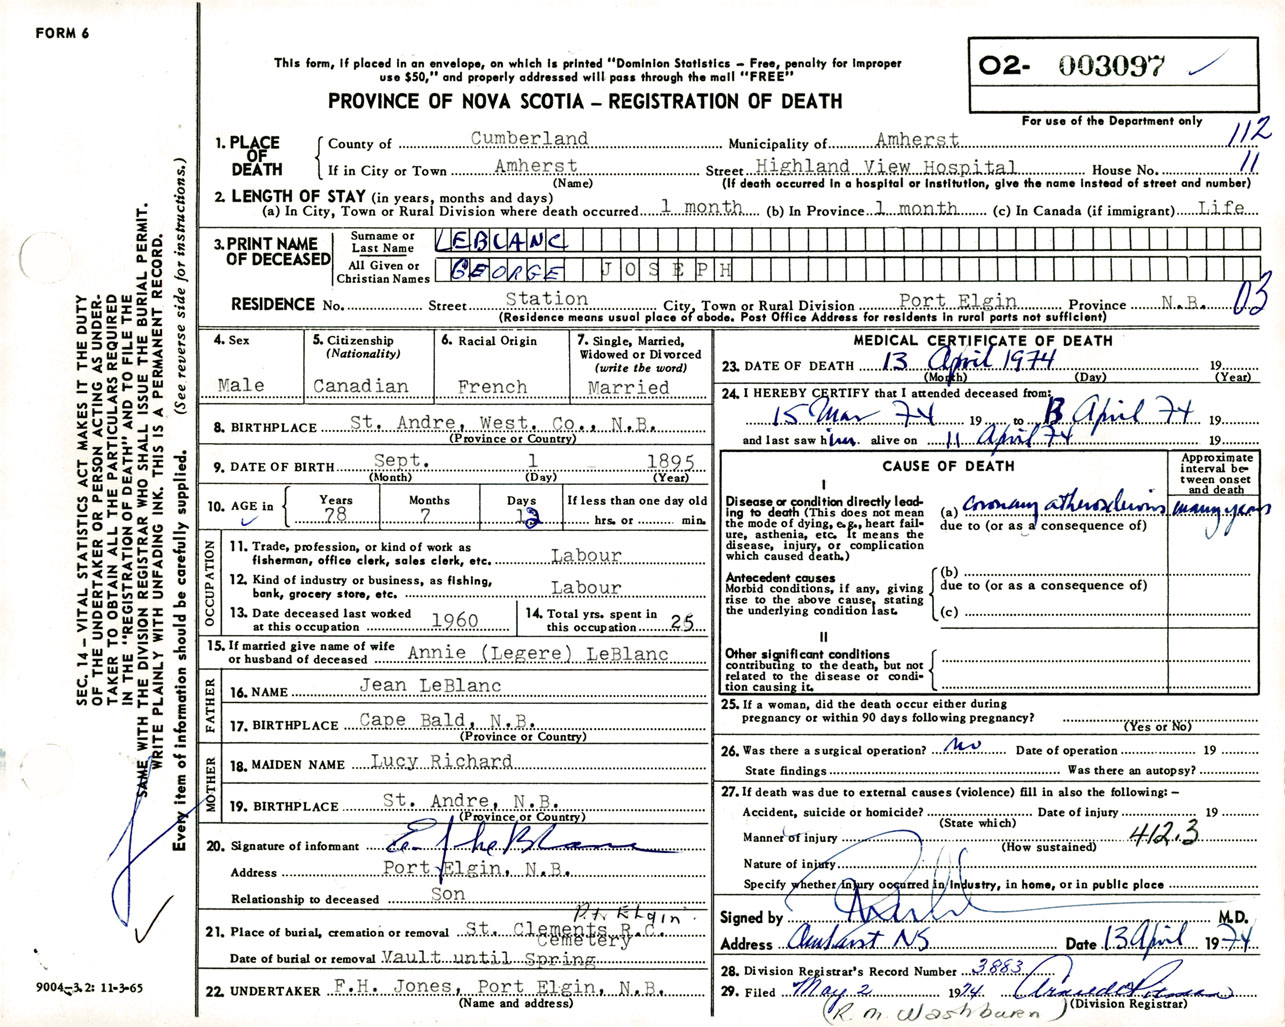 FORM 6
This form, if placed in an envelope, on which is printed "Dominion Statistics – Free, penalty for improper
use $50," and properly addressed will pass through the mail "FREE"
PROVINCE OF NOVA SCOTIA – REGISTRATION OF DEATH
02- 003097 ✓
For use of the Department only
112
1. PLACE OF DEATH
County of Cumberland Municipality of Amherst
If in City or Town Amherst Street Highland View Hospital House No. 11
(Name) (If death occurred in a hospital or institution, give the name instead of street and number)
2. LENGTH OF STAY (in years, months and days)
(a) In City, Town or Rural Division where death occurred 1 month (b) In Province 1 month (c) In Canada (if immigrant) Life
3. PRINT NAME OF DECEASED
Surname or Last Name LEBLANC
All Given or Christian Names GEORGE JOSEPH
RESIDENCE No. Street Station City, Town or Rural Division Port Elgin Province N.B. 03
(Residence means usual place of abode. Post Office Address for residents in rural parts not sufficient)
4. Sex Male
5. Citizenship (Nationality) Canadian
6. Racial Origin French
7. Single, Married, Widowed or Divorced (write the word) Married
8. BIRTHPLACE St. Andre, West. Co., N.B.
(Province or Country)
9. DATE OF BIRTH Sept. 1 1895
(Month) (Day) (Year)
10. AGE in ✓ Years 78 Months 7 Days 12 If less than one day old hrs. or min.
OCCUPATION
11. Trade, profession, or kind of work as
fisherman, office clerk, sales clerk, etc. Labour
12. Kind of industry or business, as fishing,
bank, grocery store, etc. Labour
13. Date deceased last worked
at this occupation 1960
14. Total yrs. spent in
this occupation 25
15. If married give name of wife
or husband of deceased Annie (Legere) LeBlanc
FATHER
16. NAME Jean LeBlanc
17. BIRTHPLACE Cape Bald, N.B.
(Province or Country)
MOTHER
18. MAIDEN NAME Lucy Richard
19. BIRTHPLACE St. Andre, N.B.
(Province or Country)
20. Signature of informant
Address Port Elgin, N.B.
Relationship to deceased Son
Pt. Elgin.
21. Place of burial, cremation or removal St. Clements R.C.
Cemetery
Date of burial or removal Vault until Spring
22. UNDERTAKER F.H. Jones, Port Elgin, N.B.
(Name and address)
MEDICAL CERTIFICATE OF DEATH
23. DATE OF DEATH 13 April 1974 19
(Month) (Day) (Year)
24. I HEREBY CERTIFY that I attended deceased from:
15 Mar 74 19 to 13 April 74 19
and last saw him alive on 11 April 74 19
CAUSE OF DEATH
Approximate interval between onset and death
I
Disease or condition directly lead-
ing to death (This does not mean
the mode of dying, e.g., heart fail-
ure, asthenia, etc. It means the
disease, injury, or complication
which caused death.)
(a) coronary atherosclerosis many years
due to (or as a consequence of)
Antecedent causes
Morbid conditions, if any, giving
rise to the above cause, stating
the underlying condition last.
(b)
due to (or as a consequence of)
(c)
II
Other significant conditions
contributing to the death, but not
related to the disease or condi-
tion causing it.
25. If a woman, did the death occur either during
pregnancy or within 90 days following pregnancy?
(Yes or No)
26. Was there a surgical operation? no Date of operation 19
State findings Was there an autopsy?
27. If death was due to external causes (violence) fill in also the following: –
Accident, suicide or homicide? Date of injury 19
(State which)
Manner of injury 412.3
(How sustained)
Nature of injury
Specify whether injury occurred in industry, in home, or in public place
Signed by M.D.
Address Amherst NS Date 13 April 1974
28. Division Registrar's Record Number 3883
29. Filed May 2 1974
(Division Registrar)
(R. M. Washburn)
SEC. 14 – VITAL STATISTICS ACT MAKES IT THE DUTY
OF THE UNDERTAKER OR PERSON ACTING AS UNDER-
TAKER TO OBTAIN ALL THE PARTICULARS REQUIRED
IN THE "REGISTRATION OF DEATH" AND TO FILE THE
SAME WITH THE DIVISION REGISTRAR WHO SHALL ISSUE THE BURIAL PERMIT.
WRITE PLAINLY WITH UNFADING INK. THIS IS A PERMANENT RECORD.
Every item of information should be carefully supplied. (See reverse side for instructions.)
9004-3.2: 11-3-65